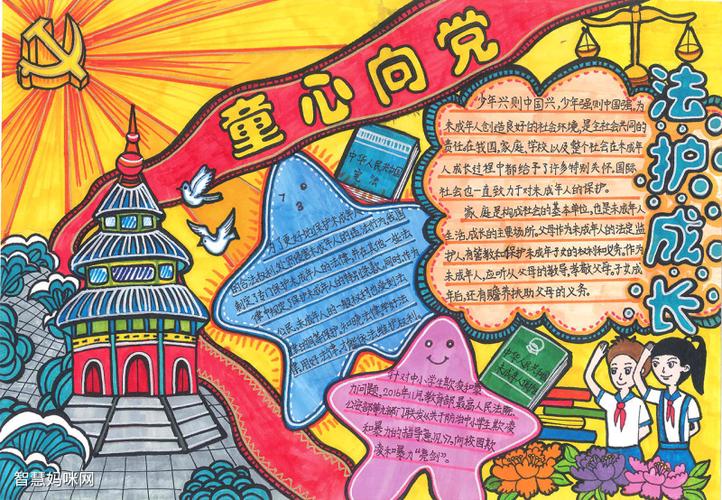 童心向党
法护成长
少年兴则中国兴,少年强则中国强,为
未成年人创造良好的社会环境,是全社会共同的
责任,在我国,家庭、学校以及整个社会在未成年
人成长过程中都给予了许多特别关怀。国际
社会也一直致力于对未成年人的保护。
家庭是构成社会的基本单位,也是未成年人
生活,成长的主要场所,父母作为未成年人的法定监
护人,有管教和保护未成年子女的权利和义务,作为
未成年人,应听从父母的教导,孝敬父母,子女成
年后,还有赡养扶助父母的义务。
中华人民共和国
宪法
为了更好地保护未成年人
的合法权益,
制定了专门保护未成年人的法律,并在其他一些法
律中规定了保护未成年人的特别条款,同时,作为
公民,未成年人的一般权利也受到法
中华人民共和国
未成年人保护法
针对中小学生欺凌和暴
力问题,2016年11月,教育部、最高人民法院、
公安部等九部门联合发《关于防治中小学生欺凌
和暴力的指导意见》,向校园欺
凌和暴力“亮剑”。
智慧妈咪网